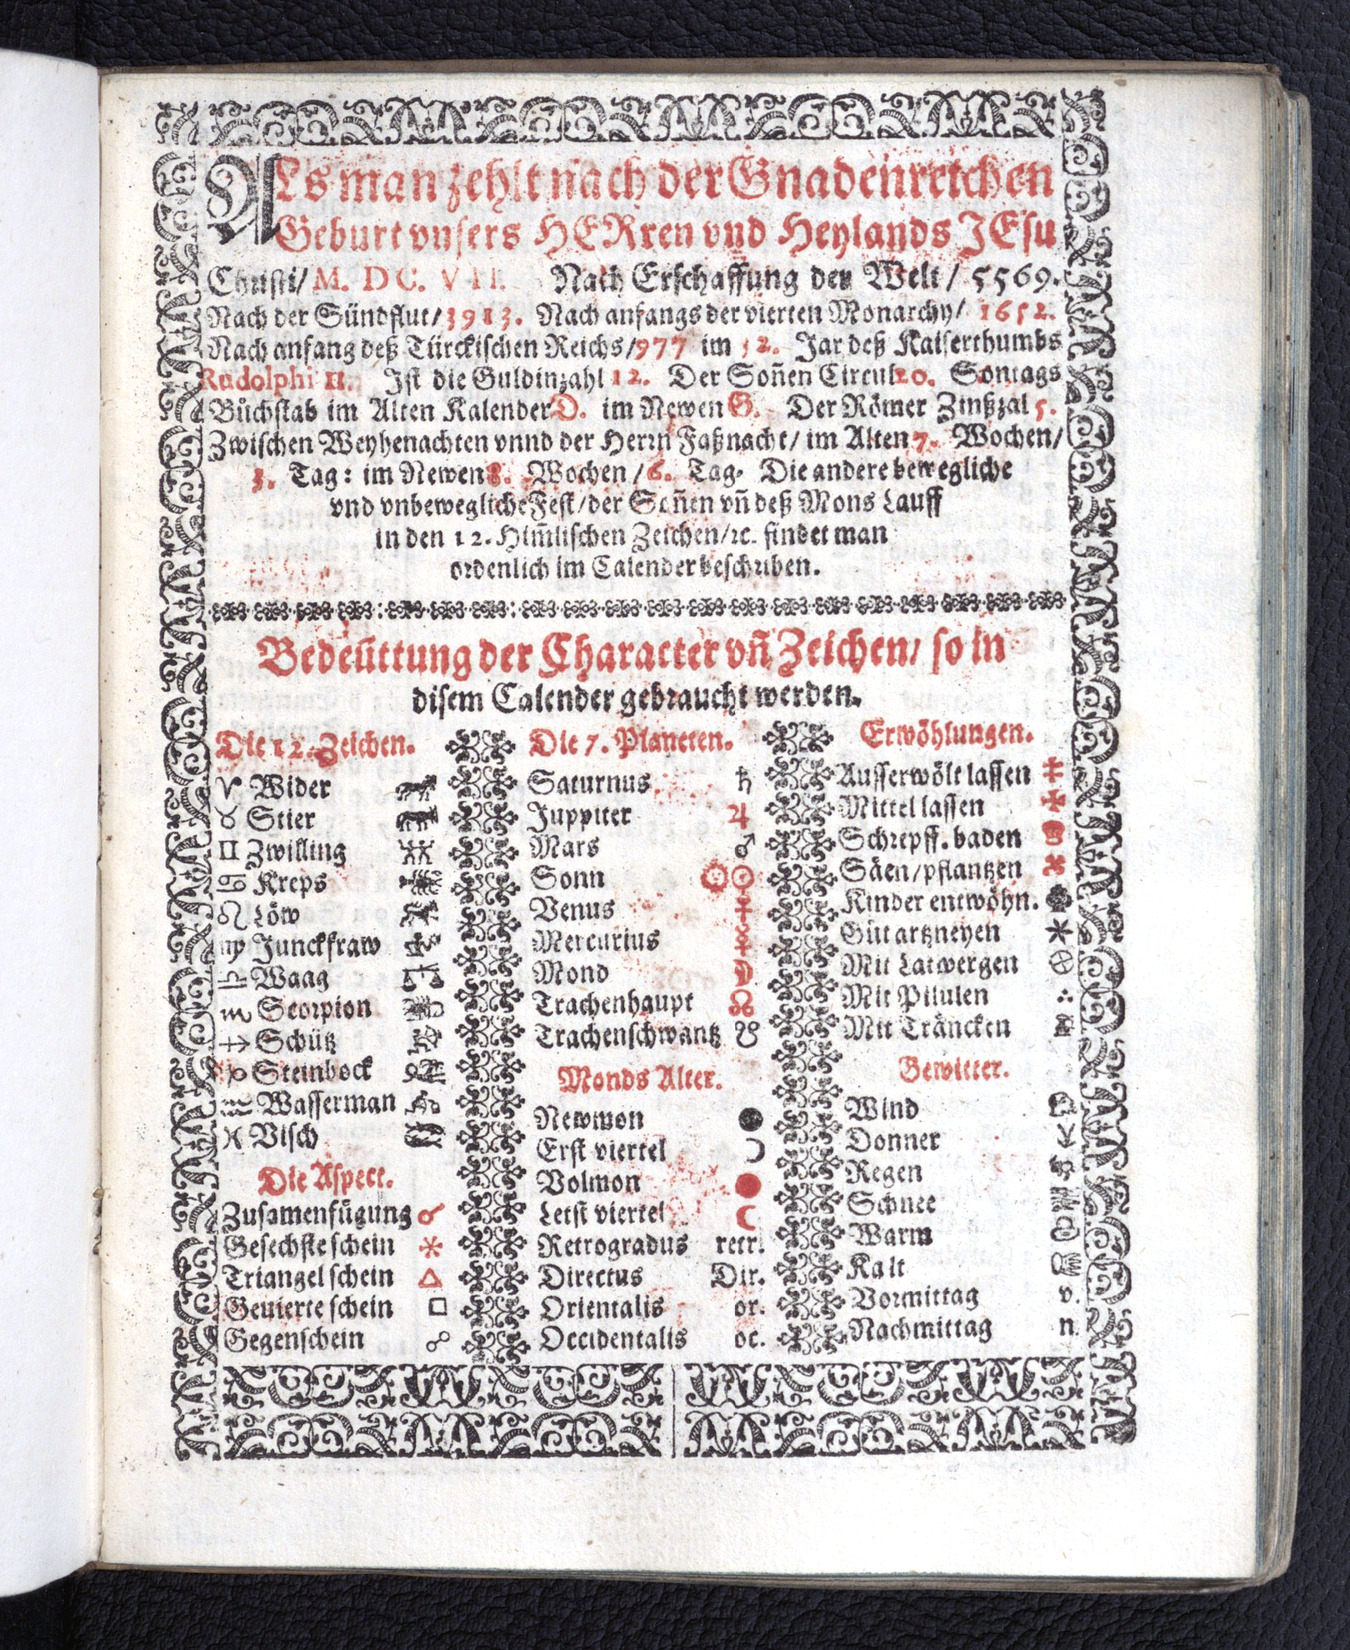 ALs man zehlt nach der Gnadenreichen
Geburt vnsers HERren vnd Heylands JEsu
Christi/ M. DC. VII. Nach Erschaffung der Welt / 5569.
Nach der Sündflut/ 3913. Nach anfangs der vierten Monarchy/ 1652.
Nach anfang deß Türckischen Reichs/ 977 im 32. Jar deß Kaiserthumbs
Rudolphi II. Jst die Guldinzahl 12. Der Soñen Circul 20. Sontags
Bůchstab im Alten Kalender D. im Newen G. Der Römer Zinßzal 5.
Zwischen Weyhenachten vnnd der Herrn Faßnacht/ im Alten 7. Wochen/
3. Tag: im Newen 8. Wochen / 6. Tag. Die andere bewegliche
vnd vnbewegliche Fest/ der Soñen vñ deß Mons Lauff
in den 12. Him̃lischen Zeichen/ ꝛc. findet man
ordenlich im Calender beschriben.
Bedeüttung der Character vñ Zeichen/ so in
disem Calender gebraucht werden.
Die 12. Zeichen.
♈ Wider
♉ Stier
♊ Zwilling
♋ Kreps
♌ Löw
♍ Junckfraw
♎ Waag
♏ Scorpion
♐ Schütz
♑ Steinbock
♒ Wasserman
♓ Visch
Die Aspect.
Zusamenfügung ☌
Gesechste schein ⚹
Triangel schein △
Geuierte schein □
Gegenschein ☍
Die 7. Planeten.
Saturnus ♄
Juppiter ♃
Mars ♂
Sonn ☉
Venus ♀
Mercurius ☿
Mond ☽
Trachenhaupt ☊
Trachenschwantz ☋
Monds Alter.
Newmon ●
Erst viertel ☽
Volmon ●
Letst viertel ☾
Retrogradus retr.
Directus Dir.
Orientalis or.
Occidentalis oc.
Erwöhlungen.
Ausserwölt lassen
Mittel lassen
Schrepff. baden
Säen/ pflantzen
Kinder entwöhn.
Gůt artzneyen
Mit Latwergen
Mit Pilulen
Mit Träncken
Gewitter.
Wind
Donner
Regen
Schnee
Warm
Kalt
Vormittag v.
Nachmittag n.